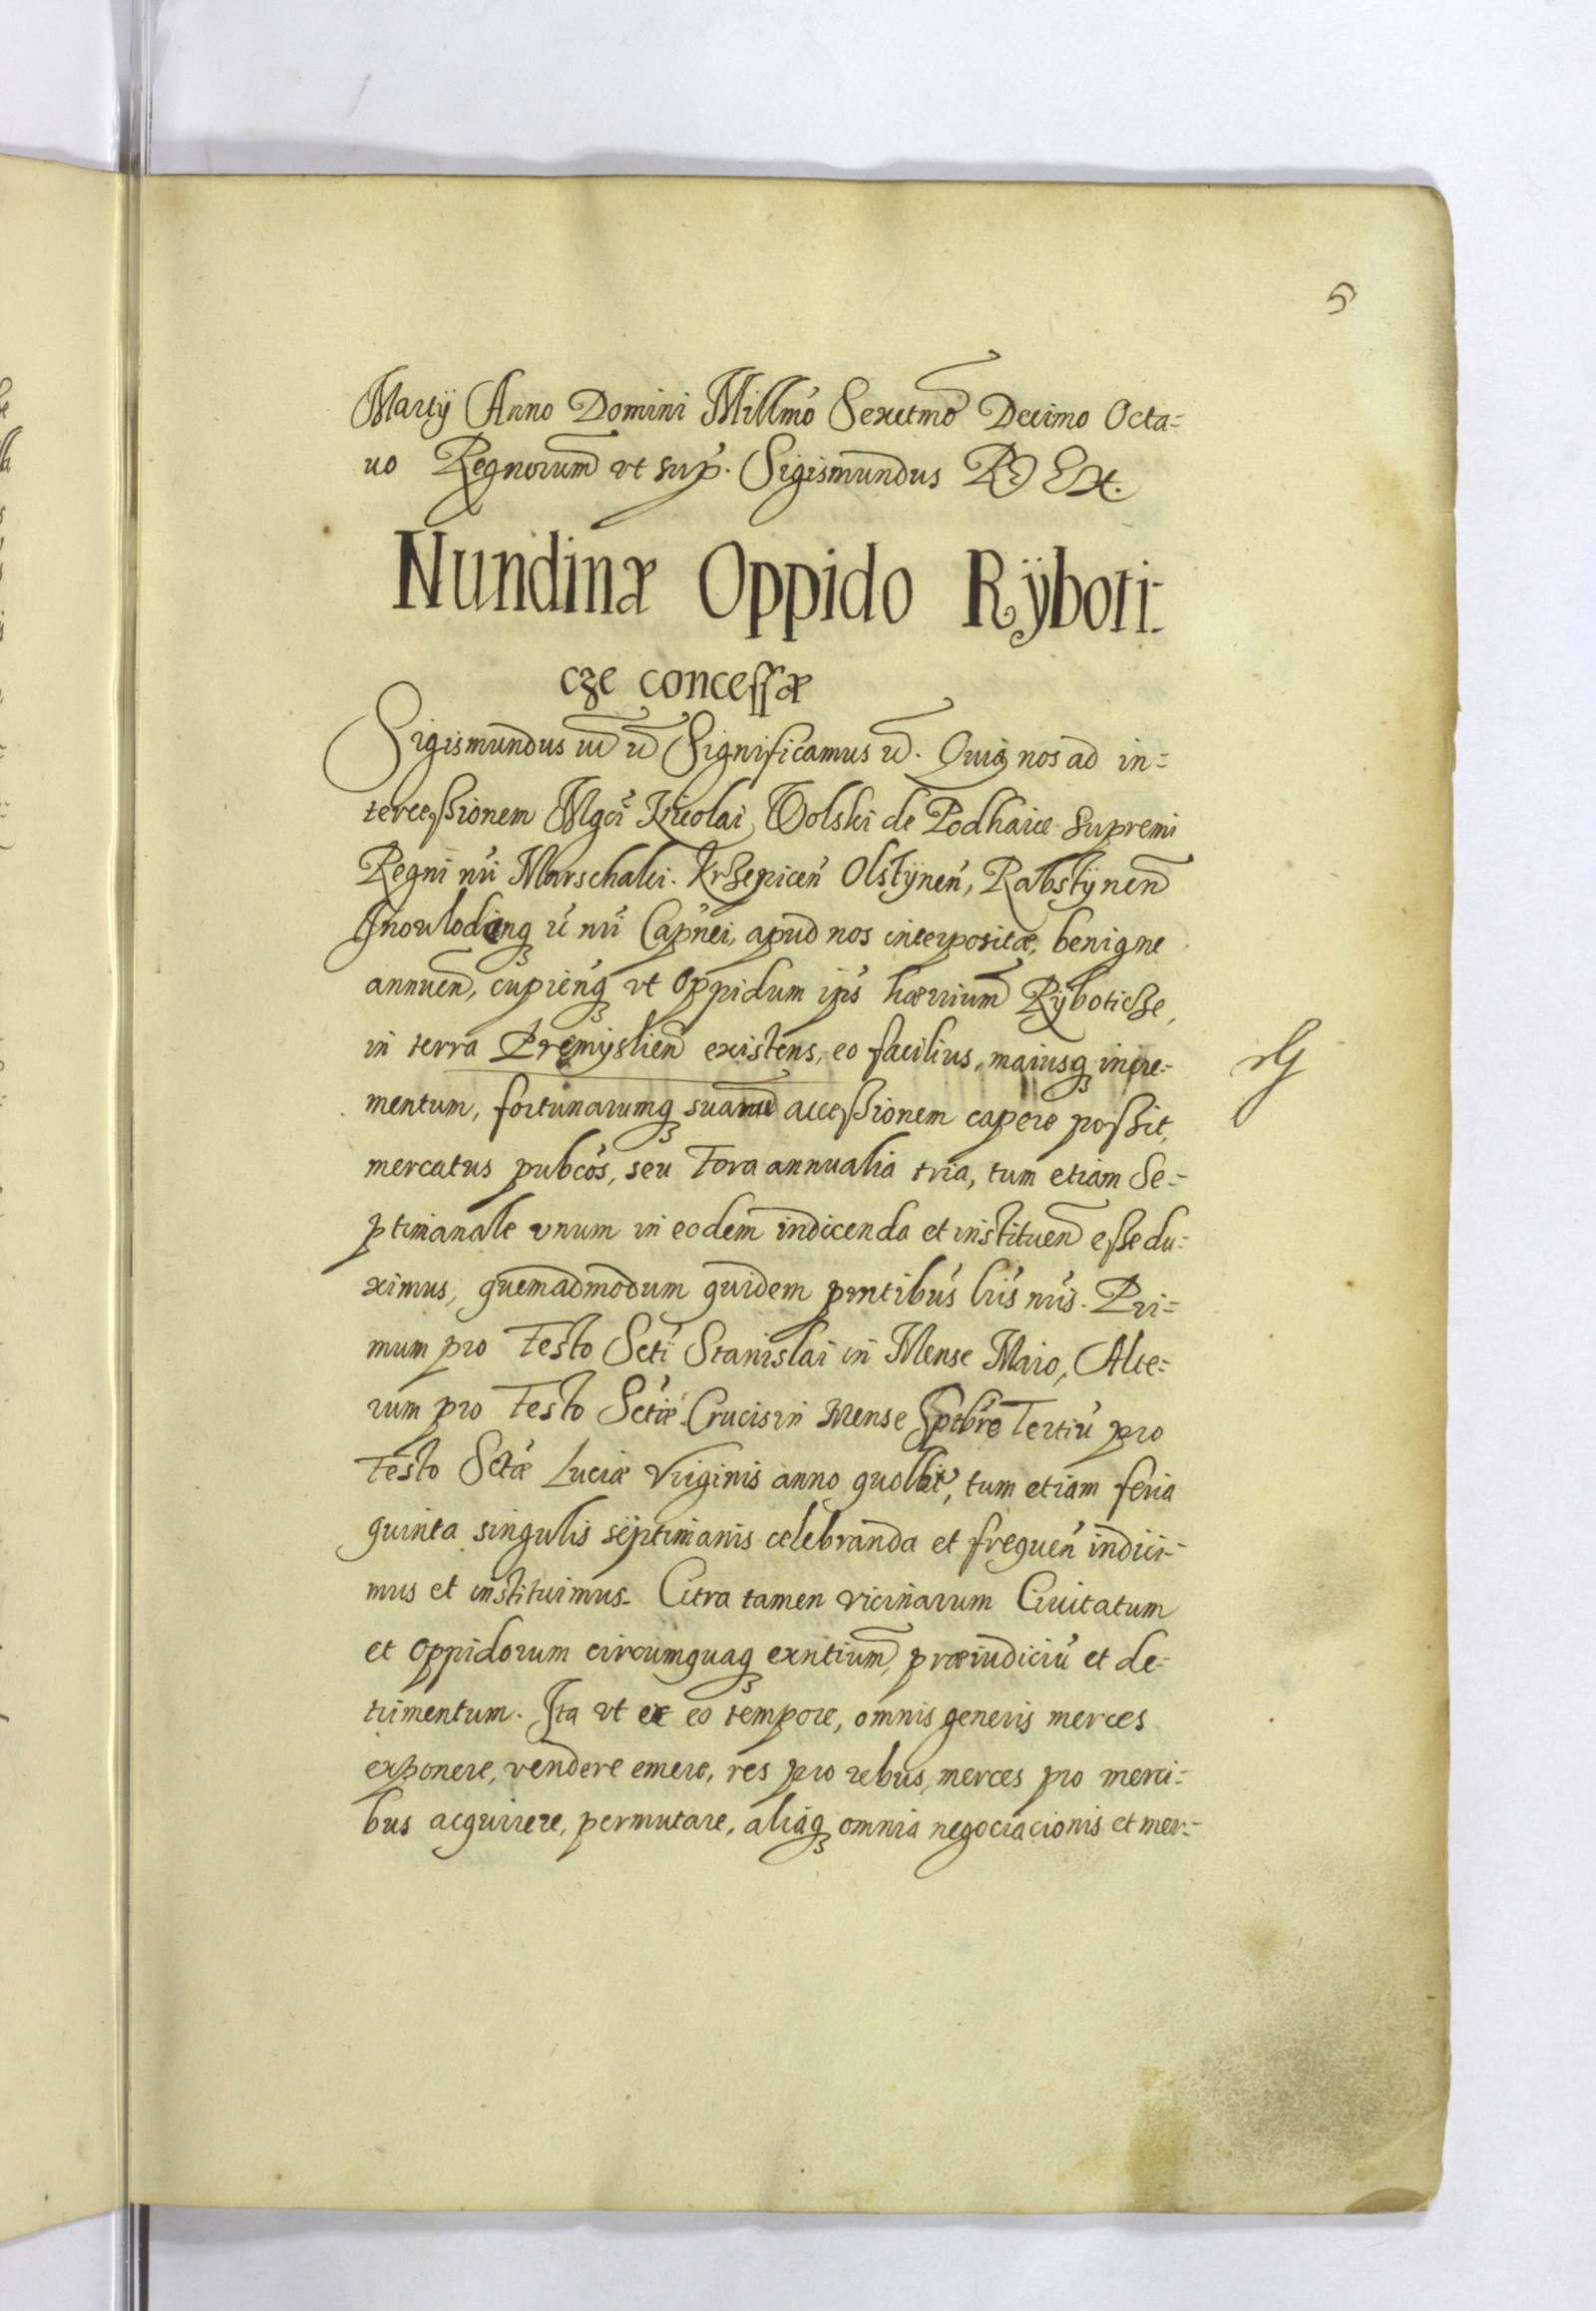 5
Martÿ Anno Domini Millmo Sexctmo Decimo Octa=
uo Regnorum vt sup. Sigismundus REX.
Nundinæ Oppido Rÿboti-
cze concessæ
Sigismundus Significamus Quia nos ad in=
tercessionem Mgci Nicolai Wolski de Podhaice Supremi
Regni nri Marschalci. Krzepicen Olstÿnen, Rabstÿnen
Inowlodenq nri Capnei, apud nos interpositæ, benigne
annuen, cupienq vt Oppidum ips hærrium Rÿboticze,
in terra Premÿslien existens, eo facilius, maiusq incre=
mentum, fortunarumq suarum accessionem capere possit,
mercatus pubcos, seu Fora annualia tria, tum etiam Se=
ptimanale vnum in eodem indicenda et instituen esse du=
ximus, quemadmodum quidem pntibus lris nris. Pri=
mum pro Festo Scti Stanislai in Mense Maio, Alte=
rum pro Festo Sctæ Crucis in Mense Sptbre Tertiu pro
Festo Sctæ Luciæ Virginis anno quolibt, tum etiam feria
quinta singulis septimanis celebranda et frequen indici=
mus et instituimus. Citra tamen vicinarum Ciuitatum
et Oppidorum circumquaq exntium, præiudiciu et de=
trimentum. Ita vt ex eo tempore, omnis generis merces
exponere, vendere emere, res pro rebus, merces pro merci=
bus acquirere, permutare, aliaq omnia negociacionis et mer=